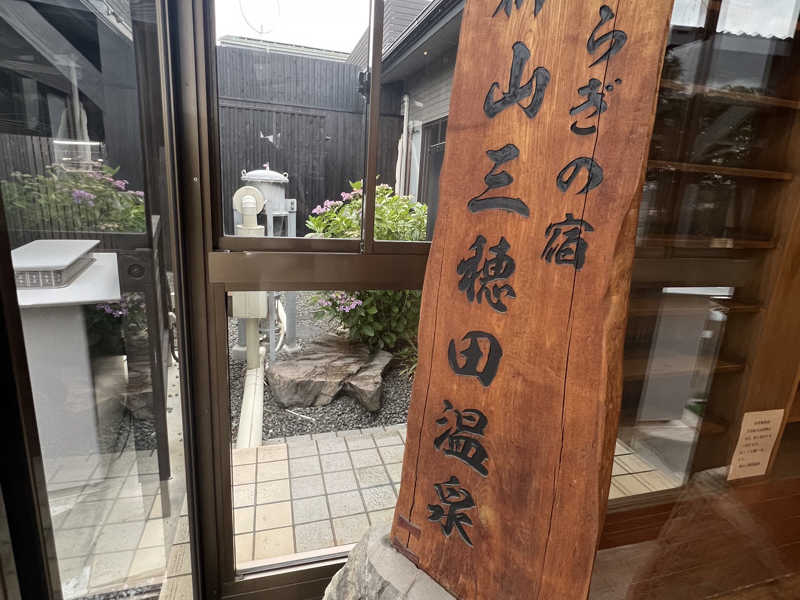 らぎの宿
山三穂田温泉